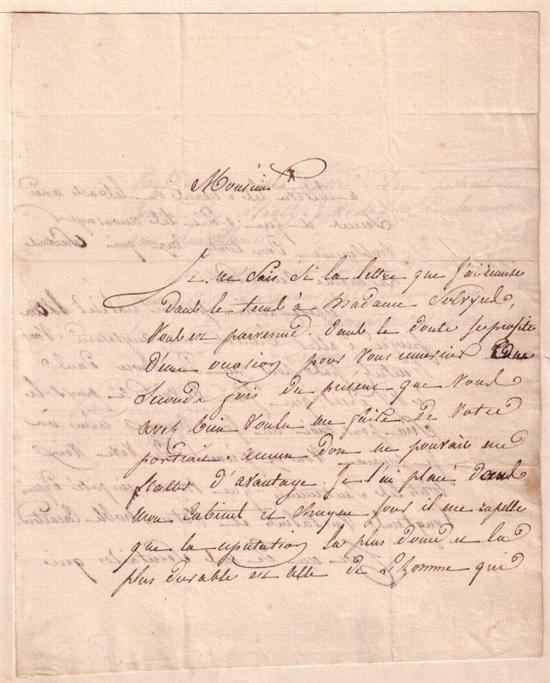 Monsieur
Je ne sais si la lettre que j'ai remise
dans le tems à Madame
vous est parvenue, dans le doute je profite
d'une occasion pour vous remercier une
seconde fois du présent que vous
avez bien voulu me faire de votre
portrait aucun don ne pouvait me
flatter d'avantage. Je l'ai placé dans
mon cabinet et chaque jour il me rapelle
que la réputation la plus douce et la
plus durable est celle de l'homme qui